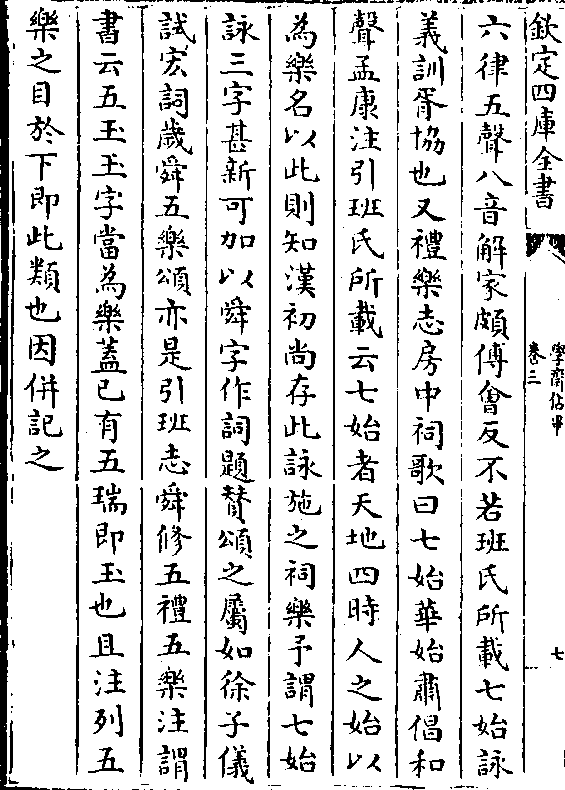 欽定四庫全書
學齋佔畢
卷三
七
六律五聲八音解家頗傅㑹反不若班氏所載七始詠
義訓胥協也又禮樂志房中祠歌曰七始華始肅倡和
聲孟康注引班氏所載云七始者天地四時人之始以
為樂名以此則知漢初尚存此詠施之祠樂予謂七始
詠三字甚新可加以舜字作詞題賛頌之屬如徐子儀
試宏詞歲舜五樂頌亦是引班志舜修五禮五樂注謂
書云五玉玉字當為樂蓋已有五瑞即玉也且注列五
樂之目於下即此類也因併記之